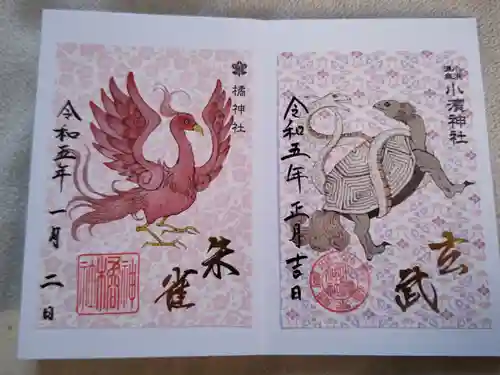 橘神社
令和五年
一月
二日
朱雀
橘神社
小濱神社
令和五年
正月吉日
玄武